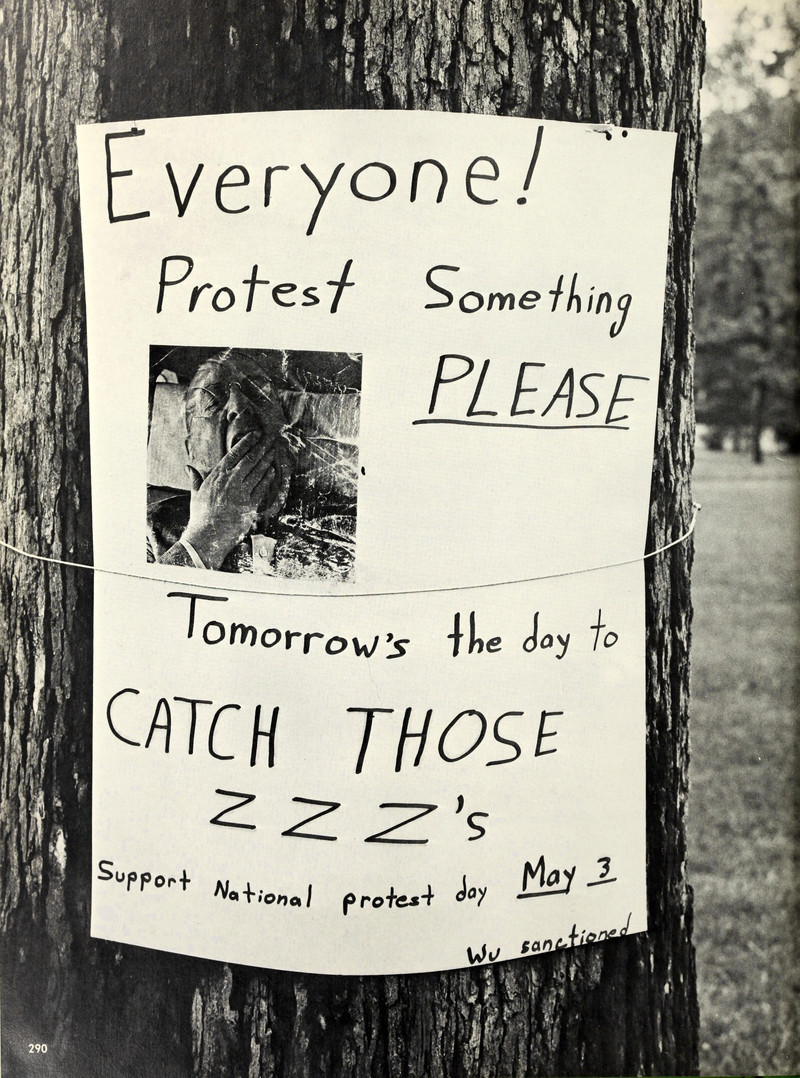 Everyone!
Protest Something
PLEASE
Tomorrow's the day to
CATCH THOSE
Z Z Z's
Support National protest day May 3
Wu sanctioned
290